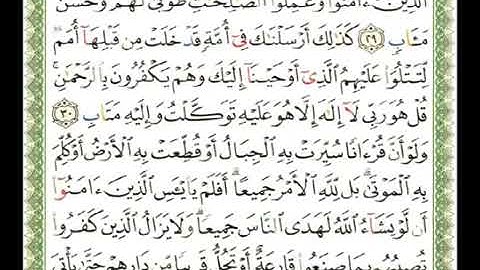 الَّذِينَ ءَامَنُوا۟ وَعَمِلُوا۟ الصَّـٰلِحَـٰتِ طُوبَىٰ لَهُمْ وَحُسْنُ
مَـَٔابٍ ٢٩ كَذَٰلِكَ أَرْسَلْنَـٰكَ فِىٓ أُمَّةٍ قَدْ خَلَتْ مِن قَبْلِهَآ أُمَمٌ
لِّتَتْلُوَا۟ عَلَيْهِمُ الَّذِىٓ أَوْحَيْنَآ إِلَيْكَ وَهُمْ يَكْفُرُونَ بِالرَّحْمَـٰنِ ۚ
قُلْ هُوَ رَبِّى لَآ إِلَـٰهَ إِلَّا هُوَ عَلَيْهِ تَوَكَّلْتُ وَإِلَيْهِ مَتَابِ ٣٠
وَلَوْ أَنَّ قُرْءَانًا سُيِّرَتْ بِهِ الْجِبَالُ أَوْ قُطِّعَتْ بِهِ الْأَرْضُ أَوْ كُلِّمَ
بِهِ الْمَوْتَىٰ ۗ بَل لِّلَّهِ الْأَمْرُ جَمِيعًا ۗ أَفَلَمْ يَا۟يْـَٔسِ الَّذِينَ ءَامَنُوٓا۟
أَن لَّوْ يَشَآءُ اللَّهُ لَهَدَى النَّاسَ جَمِيعًا ۗ وَلَا يَزَالُ الَّذِينَ كَفَرُوا۟
تُصِيبُهُم بِمَا صَنَعُوا۟ قَارِعَةٌ أَوْ تَحُلُّ قَرِيبًا مِّن دَارِهِمْ حَتَّىٰ يَأْتِىَ